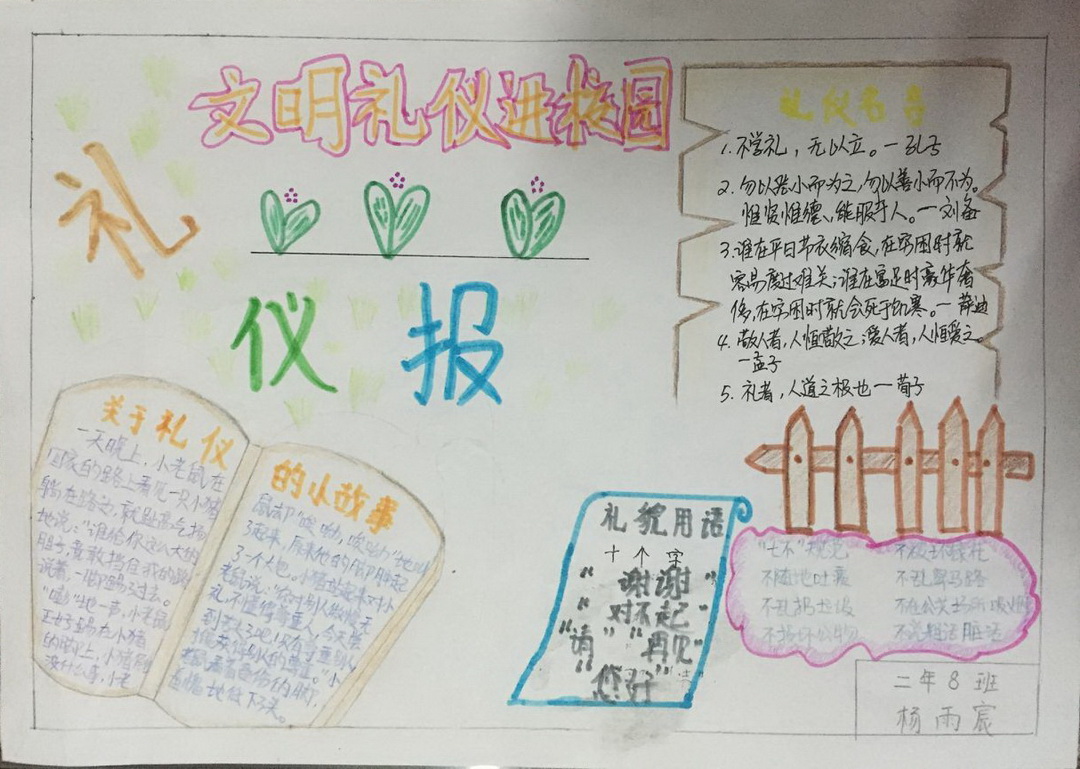 文明礼仪进校园
礼
仪 报
礼仪名言
1. 不学礼，无以立。一孔子
2. 勿以恶小而为之，勿以善小而不为。
惟贤惟德，能服于人。一刘备
3. 谁在平日节衣缩食，在穷困时就
容易度过难关；谁在富足时豪华奢
侈，在穷困时就会死于饥寒。一萨迪
4. 敬人者，人恒敬之；爱人者，人恒爱之。
一孟子
5. 礼者，人道之极也一荀子
关于礼仪
一天晚上，小老鼠在
回家的路上看见一只小猪
躺在路边，就趾高气扬
地说："谁给你这么大的
胆子，竟敢挡住我的路
说着，一脚踢了过去。
"嘭"地一声，小老鼠
正好踢在小猪
的脚上，小猪
没什么事，小老
的小故事
鼠却"哎哟，哎哟"地叫
了起来，原来他的脚肿起
了一个大包。小猪站起来对小
老鼠说："你对别人傲慢无
礼，不懂得尊重人，今天尝
到苦头了吧！只有尊重别人
才能获得别人的尊重。"小
老鼠看着受伤的脚，
羞愧地低下了头。
礼貌用语
十个字
"谢谢"
"对不起"
"请" "再见"
"您好"
"七不"规范
不随地吐痰
不乱扔垃圾
不损坏公物
不乱穿马路
不在公共场所吸烟
不说粗话脏话
二年8班
杨雨宸